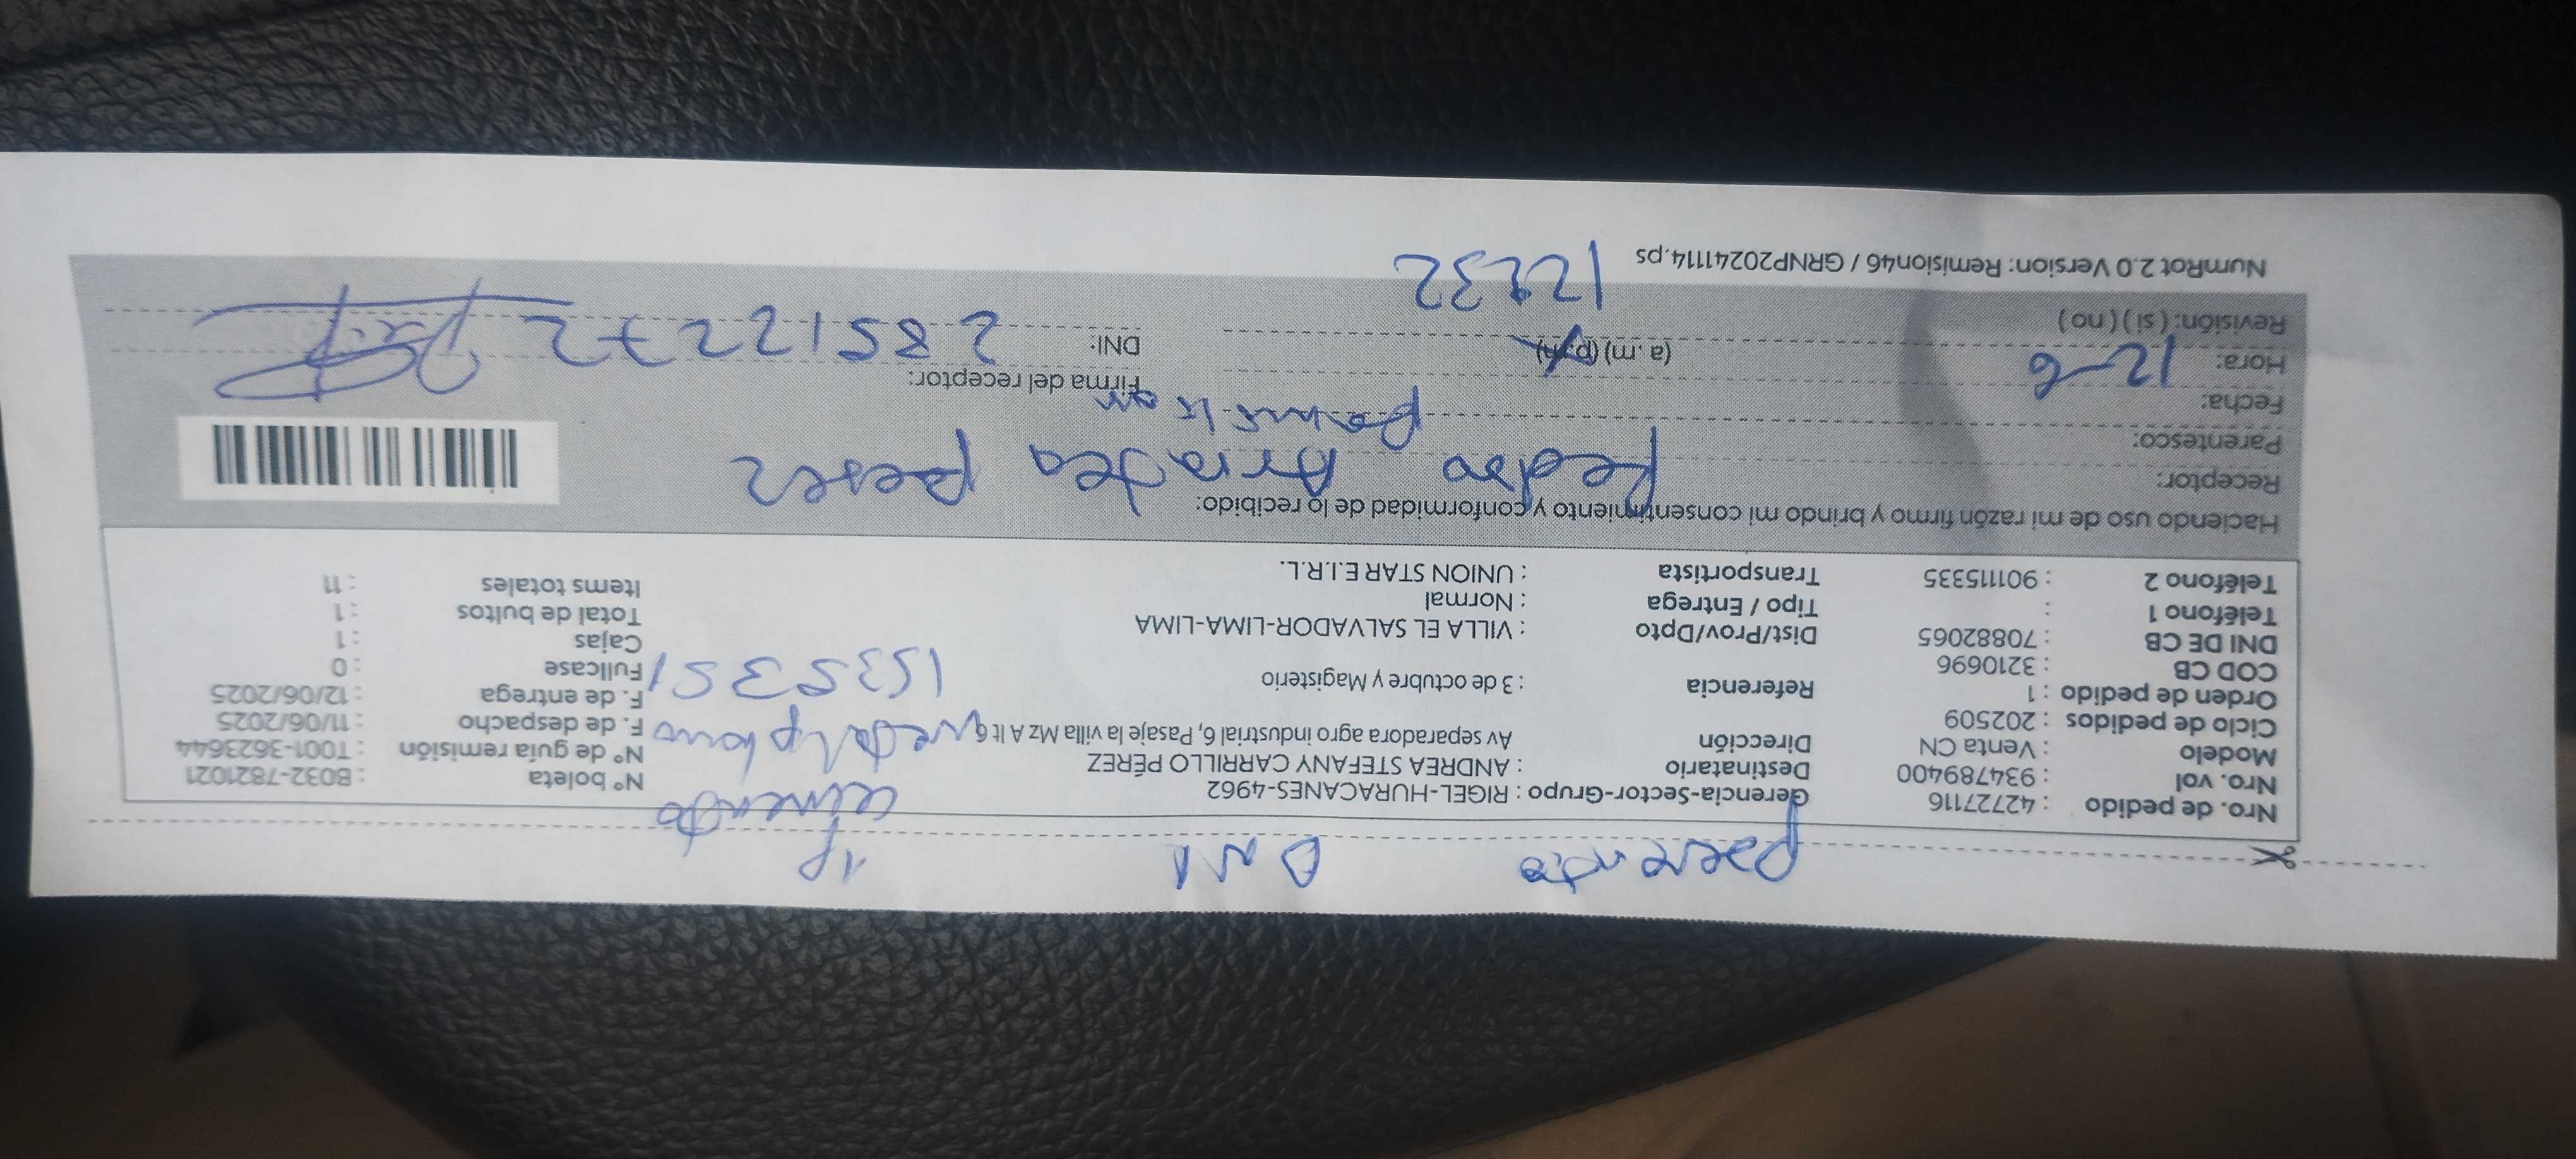 Nro. de pedido : 42727116 Gerencia-Sector-Grupo : RIGEL-HURACANES-4962 N° boleta : B032-7821021
Nro. vol : 934789400 Destinatario : ANDREA STEFANY CARRILLO PÉREZ N° de guía remisión : T001-3623644
Modelo : Venta CN Dirección Av separadora agro industrial 6, Pasaje la villa Mz A lt 6 F. de despacho : 11/06/2025
Ciclo de pedidos : 202509 Referencia : 3 de octubre y Magisterio F. de entrega : 12/06/2025
Orden de pedido : 1 Fullcase : 0
COD CB : 3210696 Dist/Prov/Dpto : VILLA EL SALVADOR-LIMA-LIMA Cajas : 1
DNI DE CB : 70882065 Tipo / Entrega : Normal Total de bultos : 1
Teléfono 1 : Transportista : UNION STAR E.I.R.L. Items totales : 11
Teléfono 2 : 901115335
Haciendo uso de mi razón firmo y brindo mi consentimiento y conformidad de lo recibido:
Receptor: Pedro
Parentesco:
Fecha: Firma del receptor:
Hora: 12-6 (a.m) (p.m) DNI: 28512272
Revisión: ( si ) ( no )
NumRot 2.0 Version: Remision46 / GRNP20241114.ps 12232